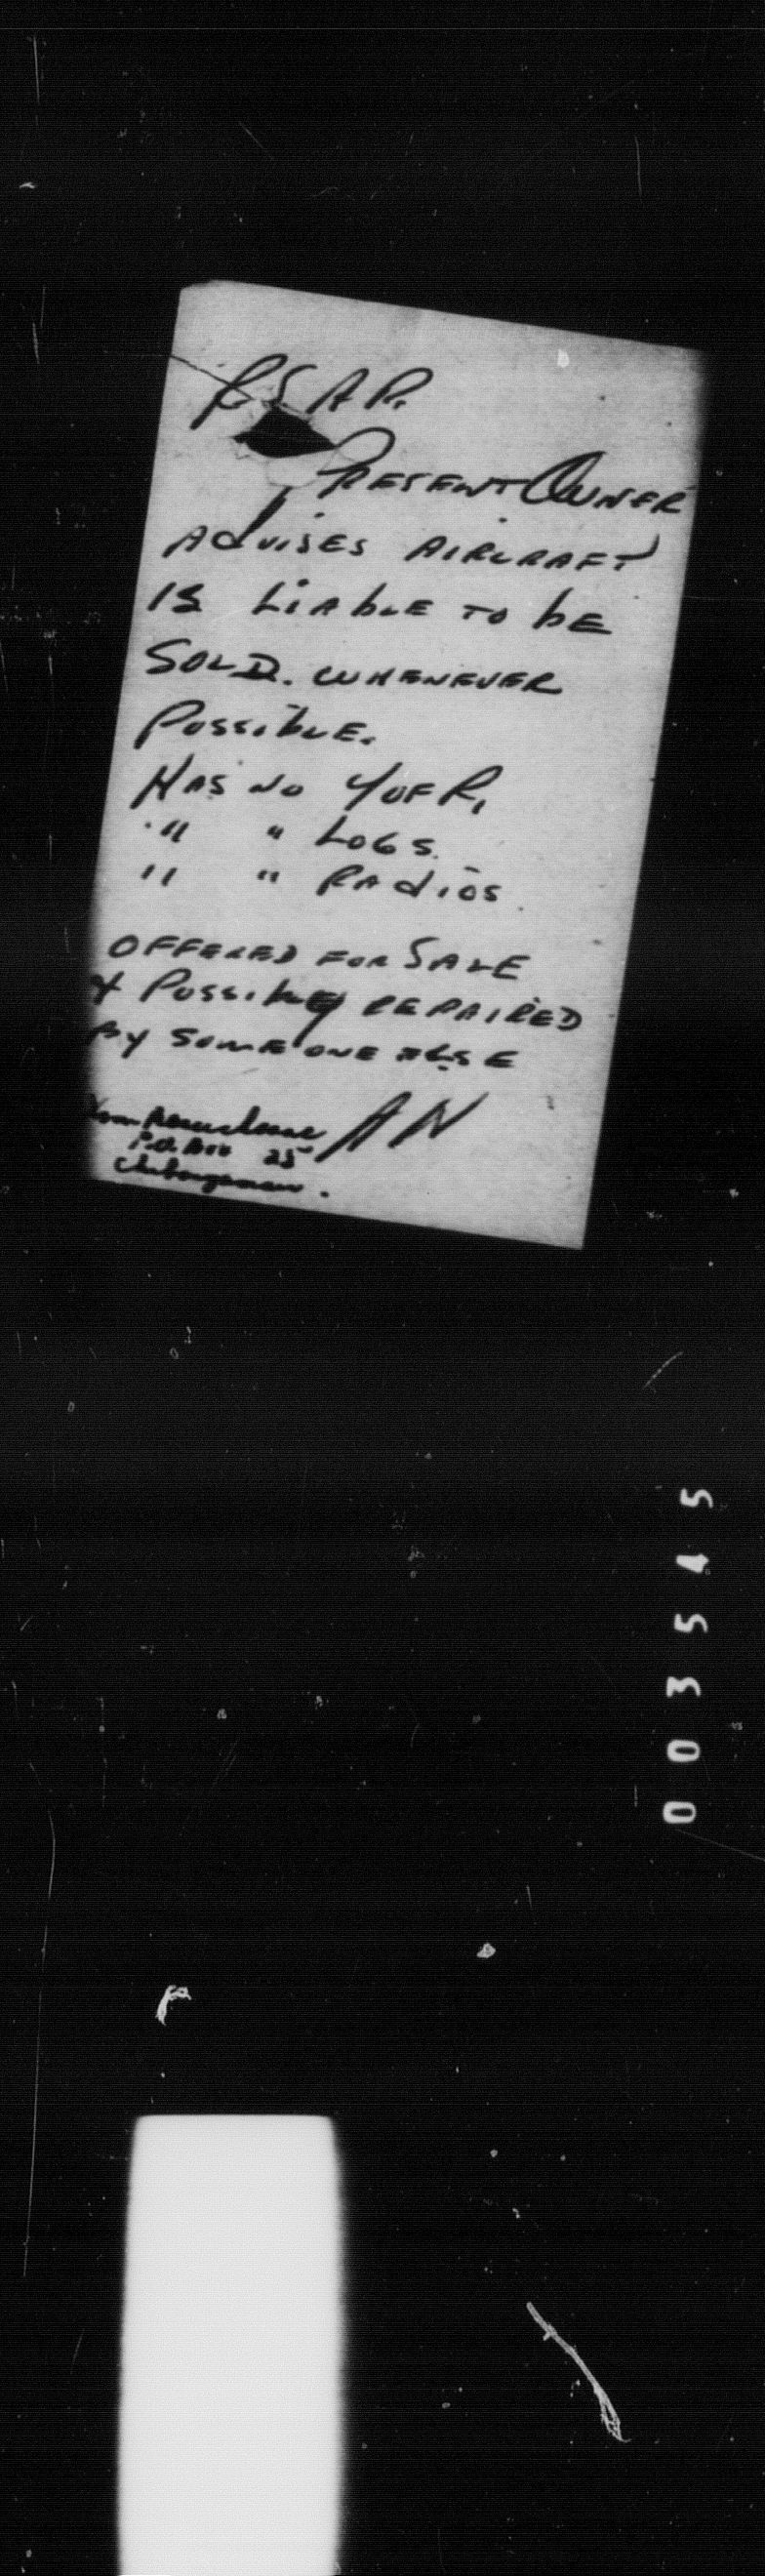 RSAR.
PRESENT OWNER
AdVISES AIRCRAFT
IS LiAbLE TO bE
SOLD. WHENEVER
POSSibLE.
HAS NO YOFR,
" " LOGS.
" " RAdiOS.
OFFERED FOR SALE
& POSSibly REPAIRED
BY SOMEONE ELSE
AN
P.O. Box 25
Chibougamau.
003545